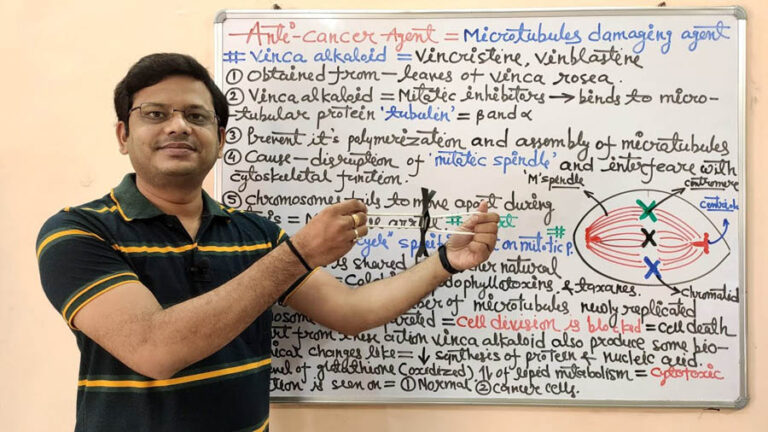 Anti-cancer Agent = Microtubules damaging agent
# Vinca alkaloid = Vincristine, Vinblastine
① Obtained from - leaves of vinca rosea.
② Vinca alkaloid = Mitotic inhibitors → binds to micro-
-tubular protein 'tubulin' = β and α
③ Prevent it's polymerization and assembly of microtubules
④ Cause - disruption of 'mitotic spindle' and interfeare with
cytoskeletal function.
'M' spindle
centromere
centriole
Chromatid
⑤ Chromosomes fails to move apart during
=
specifi on mitotic p.
is shared natural
podophyllotoxins & taxanes.
ber of microtubules newly replicated
= cell division is blocked = cell death
rt from these action vinca alkaloid also produce some bio-
ical changes like = ↓ synthesis of protein & nucleic acid.
el of glutathione (oxidized) of lipid metabolism = cytotoxic
tion is seen on = ① Normal ② cancer cells.